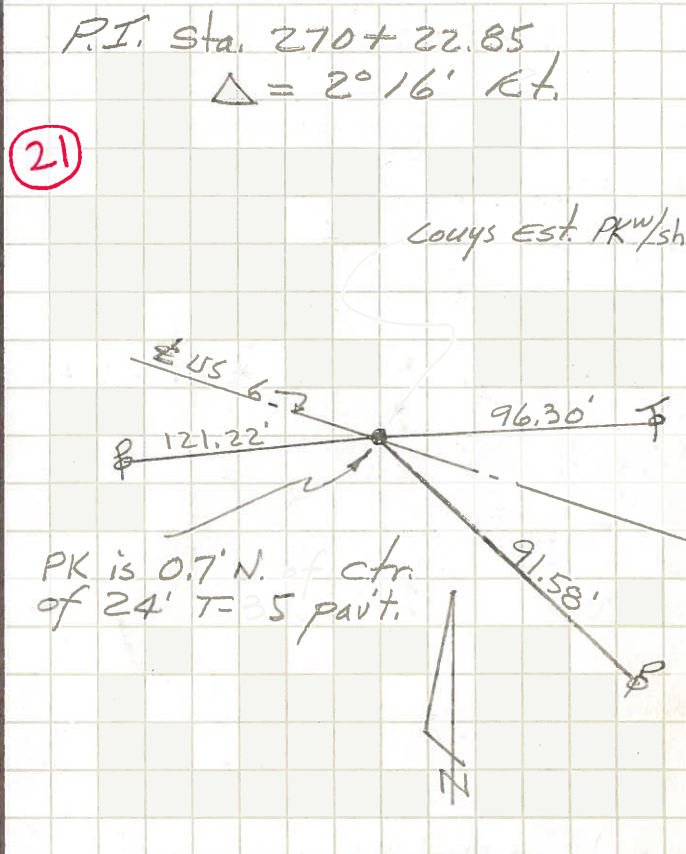 P.I. Sta. 270+22.85
Δ = 2° 16' Rt.
21
Couys Est. PK w/sh
℄ US 6
121.22'
96.30'
91.58'
PK is 0.7' N. of ctr.
of 24' T=35 pav't.
N